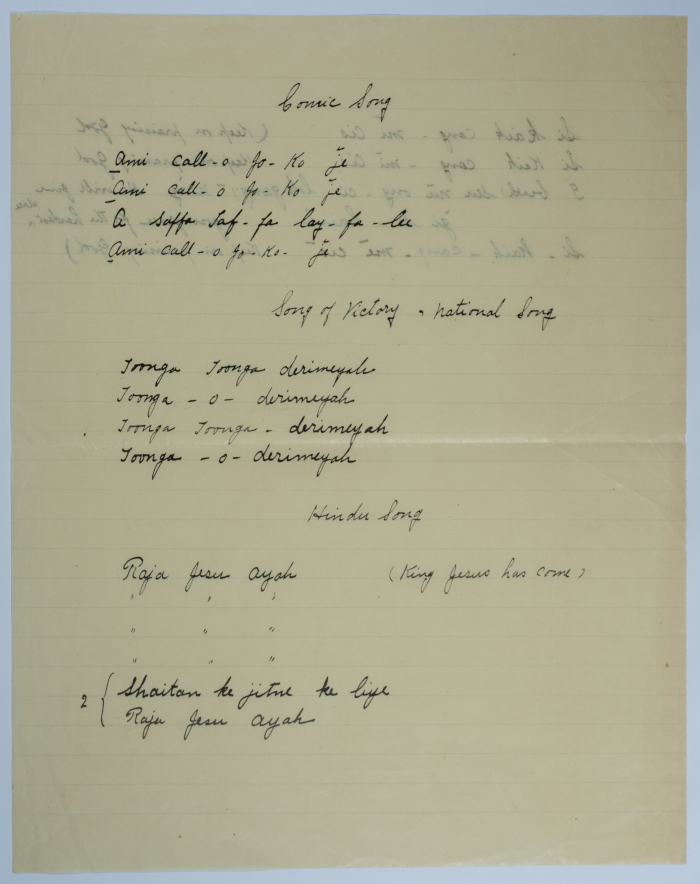 Comic Song
Ami call-o go-Ko je
Ami call-o go-Ko je
A saffa Taf-fa lay-fa-lee
Ami call-o go-Ko-je
Song of Victory - National Song
Toonga Toonga derimeyah
Toonga -o- derimeyah
Toonga Toonga - derimeyah
Toonga -o- derimeyah
Hindu Song
Raja Jesu ayah (King Jesus has come)
" " "
" " "
" " "
2 { Shaitan ke jitne ke liye
Raja Jesu ayah